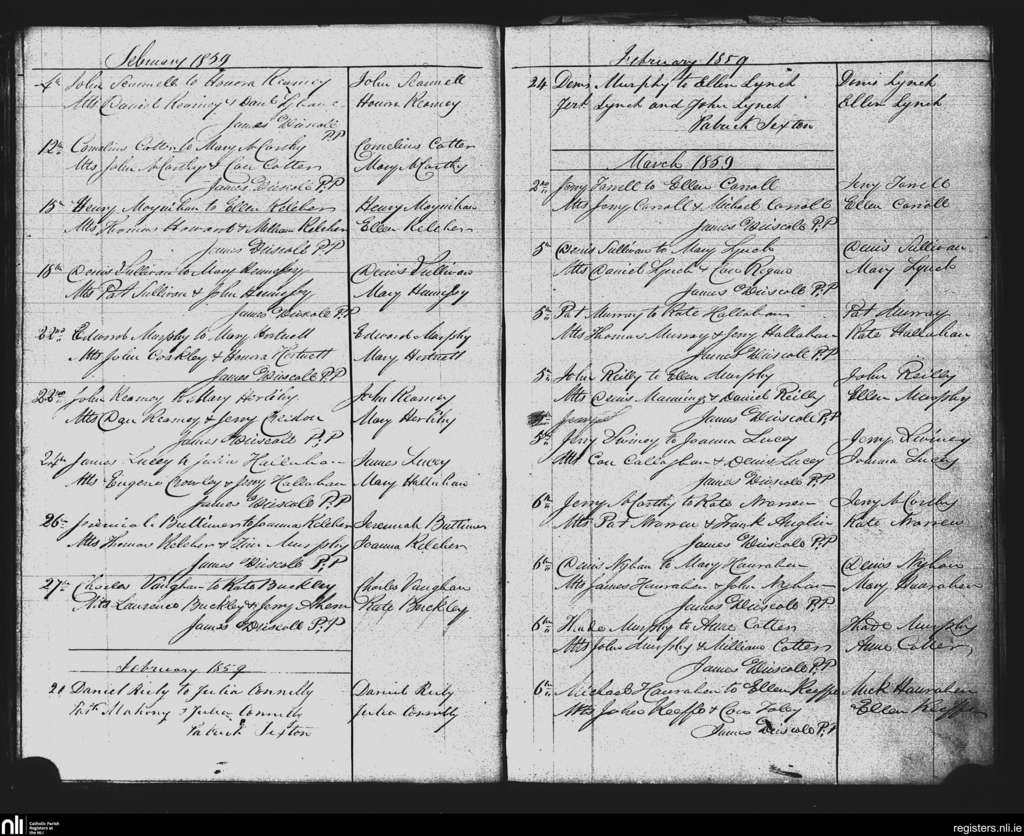 February 1859
John Scannell to Honora Kearney John Scannell
Atts Daniel Kearney & Danl Honora Kearney
James Driscoll P.P
12th Cornelius Cotter to Mary McCarthy Cornelius Cotter
Atts John McCarthy & Con Cotter Mary McCarthy
James Driscoll P.P
15th Henry Moynihan to Ellen Keleher Henry Moynihan
Atts Thomas Howard & William Keleher Ellen Keleher
James Driscoll P.P
18th Denis Sullivan to Mary Hennessy Denis Sullivan
Atts Pat Sullivan & John Hennessy Mary Hennessy
James Driscoll P.P
22nd Edward Murphy to Mary Hartnett Edward Murphy
Atts John Coakley & Honora Hartnett Mary Hartnett
James Driscoll P.P
22nd John Kearney to Mary Herlihy John Kearney
Atts Dan Kearney & Jerry Creedon Mary Herlihy
James Driscoll P.P
24th James Lucey to Julia Hallahan James Lucey
Atts Eugene Crowley & Jerry Hallahan Mary Hallahan
James Driscoll P.P
26th Buttimer to Joanna Keleher Jeremiah Buttimer
Atts Thomas Keleher & Tim Murphy Joanna Keleher
James Driscoll P.P
27th Charles Vaughan to Kate Buckley Charles Vaughan
Atts Laurence Buckley & Jerry Ahern Kate Buckley
James Driscoll P.P
February 1859
20 Daniel Riely to Julia Connelly Daniel Riely
Patk Mahony & Julia Connelly Julia Connelly
Patrick Sexton
February 1859
24 Denis Murphy to Ellen Lynch Denis Lynch
Jerh Lynch and John Lynch Ellen Lynch
Patrick Sexton
March 1859
2nd Jerry Farrell to Ellen Carroll Jerry Farrell
Atts Jerry Carroll & Michael Carroll Ellen Carroll
James Driscoll P.P
5th Denis Sullivan to Mary Lynch Denis Sullivan
Atts Daniel Lynch & Con Regan Mary Lynch
James Driscoll P.P
5th Pat Murray to Kate Hallahan Pat Murray
Atts Thomas Murray & Jerry Hallahan Kate Hallahan
James Driscoll P.P
5th John Reilly to Ellen Murphy John Reilly
Atts Denis Manning & Daniel Reilly Ellen Murphy
James Driscoll P.P
5th Jerry Diviney to Joanna Lucey Jerry Diviney
Atts Con Callaghan & Denis Lucey Joanna Lucey
James Driscoll P.P
6th Jerry McCarthy to Kate Warren Jerry McCarthy
Atts Pat Warren & Frank Kate Warren
James Driscoll P.P
6th Denis Nyhan to Mary Hanrahan Denis Nyhan
Atts James Hanrahan & John Nyhan Mary Hanrahan
James Driscoll P.P
6th Murphy to Anne Cotter Murphy
Atts John Murphy & William Cotter Anne Cotter
James Driscoll P.P
6th Michael Hanrahan to Ellen Keeffe Mick Hanrahan
Atts John Keeffe & Con Foley Ellen Keeffe
James Driscoll P.P
nli Catholic Parish
Registers at
the NLI
registers.nli.ie